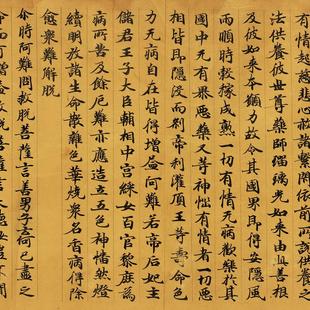 有情起慈悲心赦諸繫閉依前所說供養之
法供養彼世尊藥師瑠璃光如來由此善根
及彼如來本願力故令其國界即得安隱風
雨順時穀稼成熟一切有情无病歡樂於其
國中无有暴惡藥叉等神惱有情者一切惡
相皆即隱沒而刹帝利灌頂王等壽命色
力无病自在皆得增益阿難若帝后妃主
儲君王子大臣輔相中宮綵女百官黎庶為
病所苦及餘厄難亦應造立五色神幡然燈
續明放諸生命散雜色華燒衆名香病得除
愈衆難解脫
尒時阿難問救脫菩薩言善男子云何已盡之